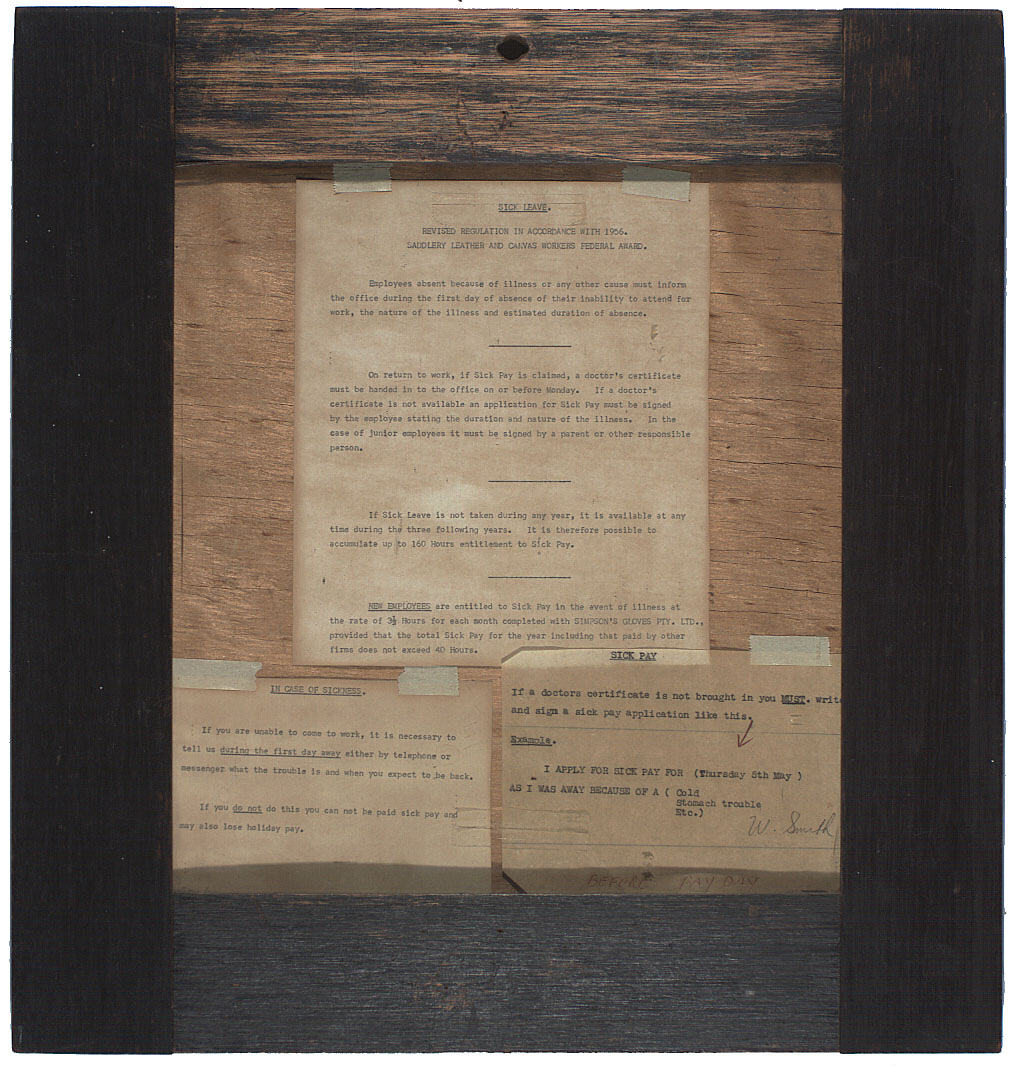 SICK LEAVE.
REVISED REGULATION IN ACCORDANCE WITH 1956.
SADDLERY LEATHER AND CANVAS WORKERS FEDERAL AWARD.
Employees absent because of illness or any other cause must inform
the office during the first day of absence of their inability to attend for
work, the nature of the illness and estimated duration of absence.
On return to work, if Sick Pay is claimed, a doctor's certificate
must be handed in to the office on or before Monday. If a doctor's
certificate is not available an application for Sick Pay must be signed
by the employee stating the duration and nature of the illness. In the
case of junior employees it must be signed by a parent or other responsible
person.
If Sick Leave is not taken during any year, it is available at any
time during the three following years. It is therefore possible to
accumulate up to 160 Hours entitlement to Sick Pay.
NEW EMPLOYEES are entitled to Sick Pay in the event of illness at
the rate of 3½ Hours for each month completed with SIMPSON'S GLOVES PTY. LTD.,
provided that the total Sick Pay for the year including that paid by other
firms does not exceed 40 Hours.
IN CASE OF SICKNESS.
If you are unable to come to work, it is necessary to
tell us during the first day away either by telephone or
messenger what the trouble is and when you expect to be back.
If you do not do this you can not be paid sick pay and
may also lose holiday pay.
SICK PAY
If a doctors certificate is not brought in you MUST. write
and sign a sick pay application like this.
Example.
I APPLY FOR SICK PAY FOR (Thursday 5th May )
AS I WAS AWAY BECAUSE OF A ( Cold
Stomach trouble
Etc.)
W. Smith
BEFORE PAY DAY